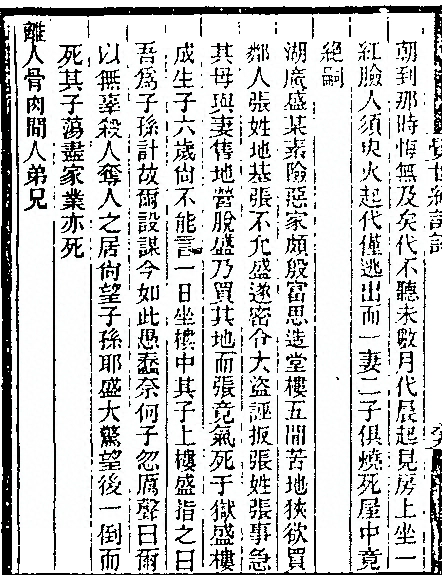 朝到那時悔無及矣代不聽未數月代晨起見房上坐一
紅臉人須臾火起代僅逃出而一妻二子俱燒死屋中竟
絕嗣
湖廣盛某素險惡家頗殷富思造堂樓五間苦地狹欲買
鄰人張姓地基張不允盛遂密令大盜誣扳張姓張事急
其母與妻售地營脫盛乃買其地而張竟氣死于獄盛樓
成生子六歲尙不能言一日坐樓中其子上樓盛指之曰
吾爲子孫計故爾設謀今如此愚蠢奈何子忽厲聲曰爾
以無辜殺人奪人之居尙望子孫耶盛大驚望後一倒而
死其子蕩盡家業亦死
離人骨肉間人弟兄